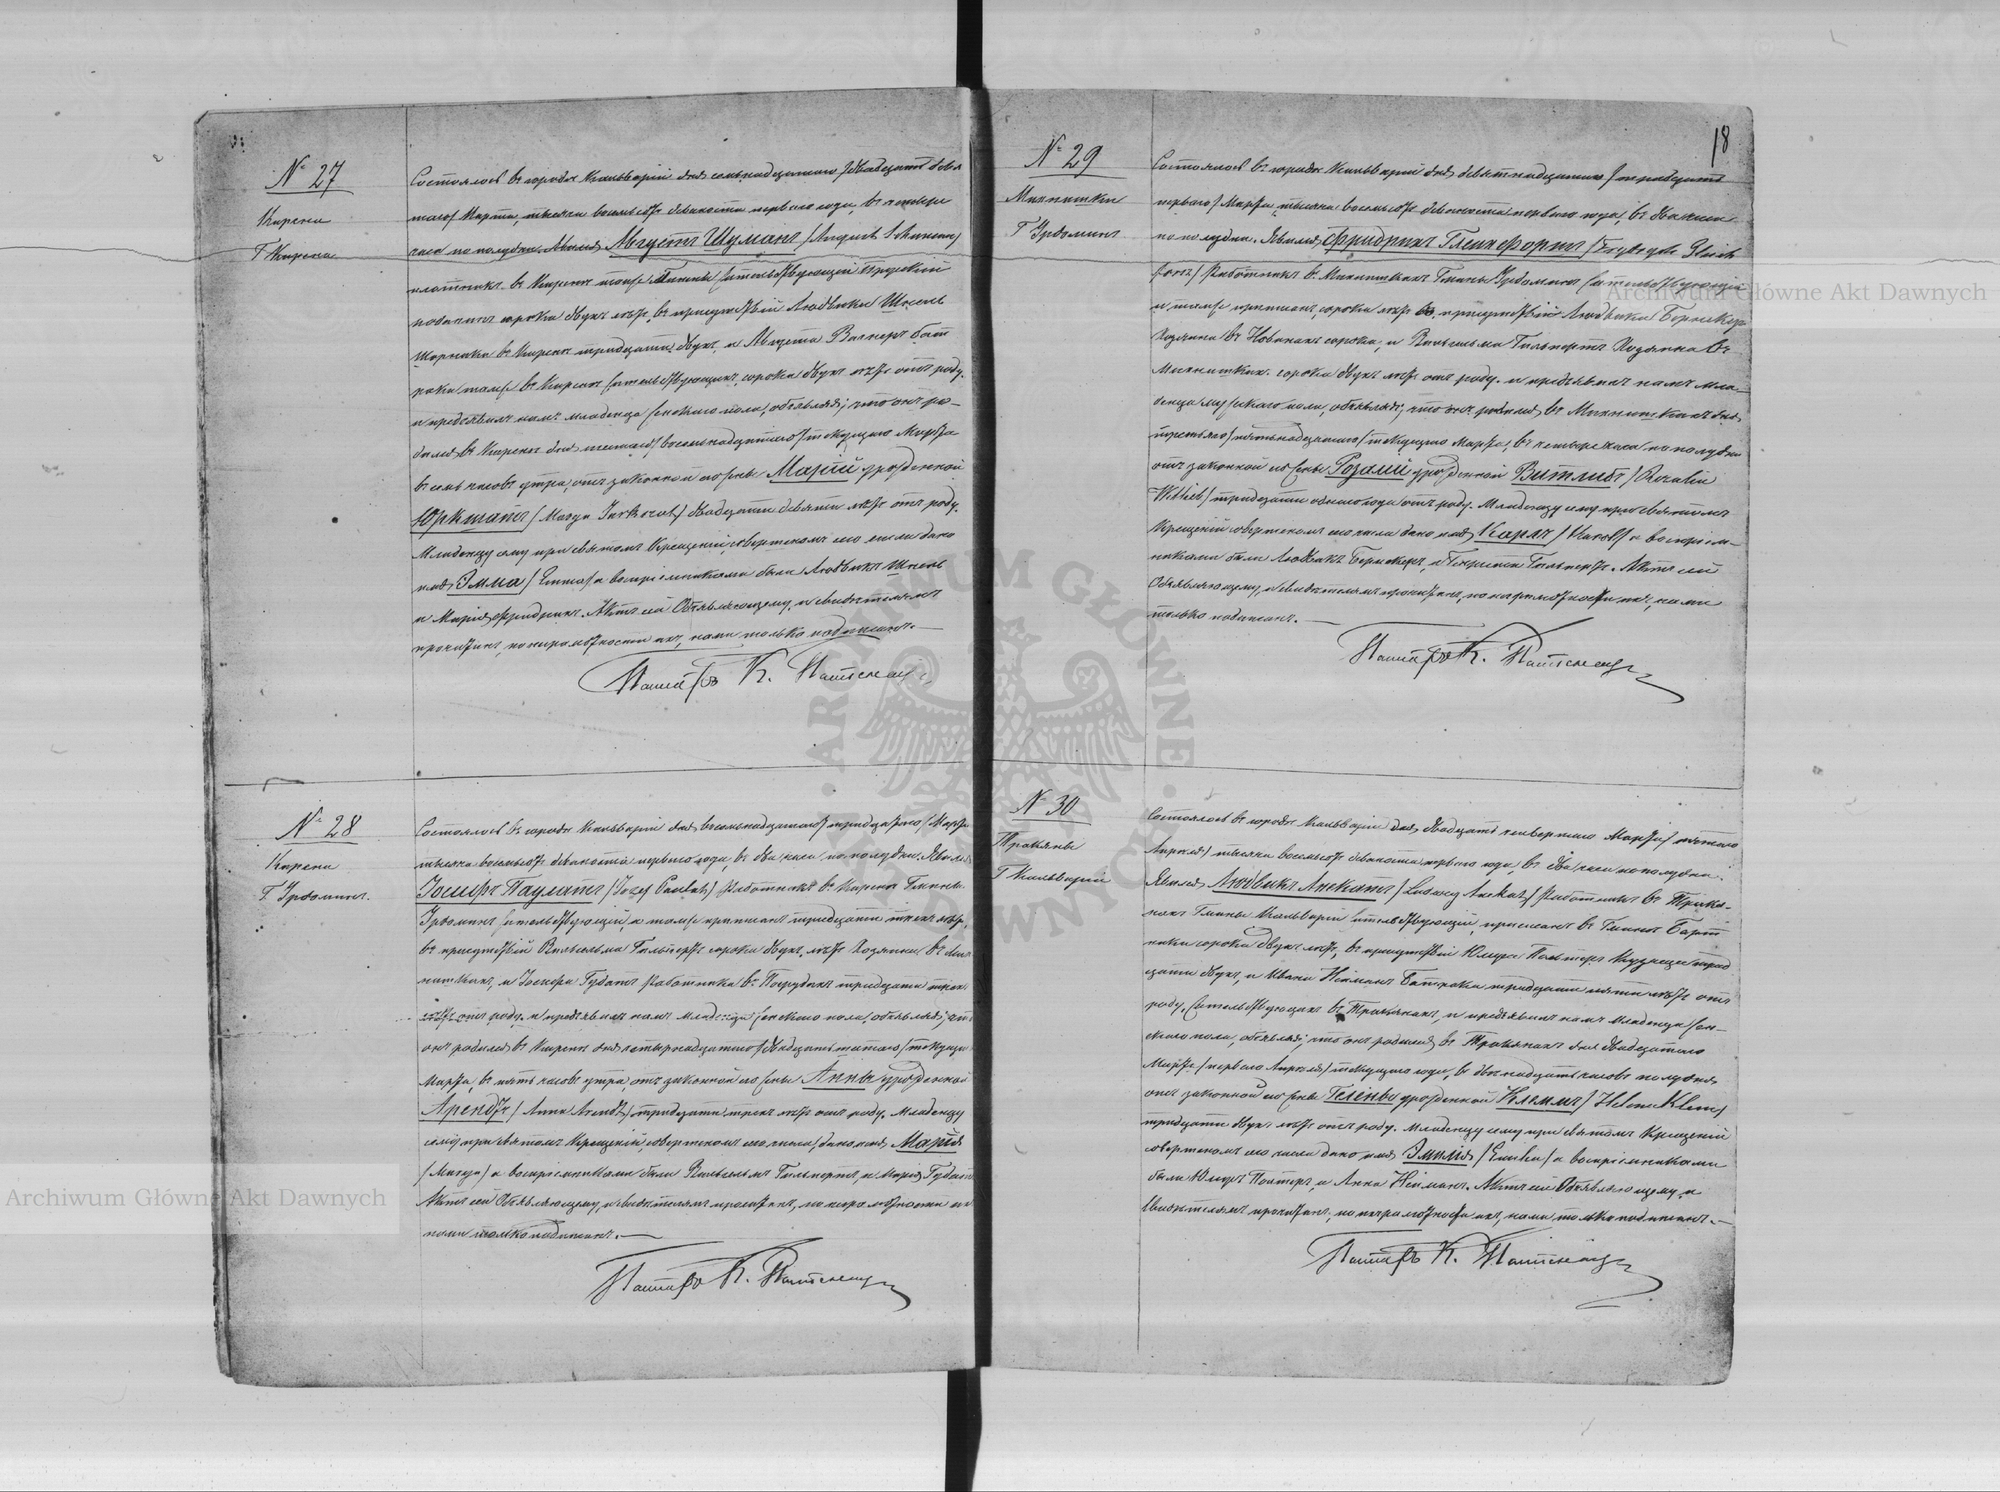 18
№ 27
Кирсна
Г. Кирсна
Состоялось въ городѣ Кальваріи дня семьнадцатаго /двадцать девя
таго/ Марта, тысяча восемьсотъ девяносто перваго года, въ четыре
часа по полудни. Явился Августъ Шуманъ /August Schuman/
плотникъ въ Кирснѣ тойже Гмины жительствующій Прусскій
подданный сорока двухъ лѣтъ, въ присутствіи Людвика Шкель
Шорника въ Кирснѣ тридцати двухъ, и Августа Вагнеръ бат
рака тамже въ Кирснѣ жительствующихъ, сорока двухъ лѣтъ отъ роду.
и предъявилъ намъ младенца женскаго пола, объявляя; что онъ ро-
дился въ Кирснѣ дня шестаго /восемьнадцатаго/ текущаго Марта
въ семь часовъ утра, отъ законной его жены Маріи урожденной
Юркшатъ /Marya Jurkszat/ двадцати девяти лѣтъ отъ роду.
Младенцу сему при святомъ Крещеніи, совершенномъ сего числа дано
имя Эмма /Emma/ а воспріемниками были Людвикъ Шкель
и Марія Фридрихъ. Актъ сей Объявляющему, и свидѣтелямъ
прочитанъ, по неграмотности ихъ, нами только подписанъ.—
Пасторъ К.
№ 28
Кирсна
Г. Урдоминъ.
Состоялось въ городѣ Кальваріи дня восемьнадцатаго /тридцатаго/ Марта
тысяча восемьсотъ девяносто перваго года, въ два часа по полудни. Явился
Іосифъ Паулатъ /Jozef Paulat/ Работникъ въ Кирснѣ Гмины
Урдоминъ жительствующій, а тамже приписанъ тридцати трехъ лѣтъ,
въ присутствіи Вильгельма Гильпертъ сорока двухъ лѣтъ Хозяина въ Мик
нишкахъ, и Іосифа Гудатъ Работника въ тридцати трехъ
лѣтъ отъ роду. и предъявилъ намъ младенца женскаго пола, объявляя; что
онъ родился въ Кирснѣ дня четырнадцатаго /двадцать шестаго/ текущаго
Марта, въ пять часовъ утра, отъ законной его жены Анны урожденной
Арендтъ /Anna Arendt/ тридцати трехъ лѣтъ отъ роду. Младенцу
сему при святомъ Крещеніи, совершенномъ сего числа, дано имя Марія
/Marya/ а воспріемниками были Вильгельмъ Гильпертъ, и Марія Гудатъ
Актъ сей Объявляющему, и свидѣтелямъ прочитанъ, по неграмотности ихъ
нами только подписанъ.—
Пасторъ К.
№ 29
Микнишки
Г. Урдоминъ
Состоялось въ городѣ Кальваріи дня девятнадцатаго /тридцать
перваго/ Марта тысяча восемьсотъ девяносто перваго года, въ два часа
по полудни. Явился Фридрихъ Глейхфорцъ /Fryderyk Gleich
forz/ Работникъ въ Микнишкахъ Гмины Урдоминъ жительствующій
и тамже приписанъ, сорока лѣтъ въ присутствіи Людвика
Хозяина въ сорока, и Вильгельма Гильпертъ Хозяина въ
Микнишкахъ сорока двухъ лѣтъ отъ роду. и предъявилъ намъ мла-
денца мужскаго пола, объявляя; что онъ родился въ Микнишкахъ дня
третьяго /пятьнадцатаго/ текущаго Марта, въ четыре часа по полудни
отъ законной его жены Розаліи урожденной Витлибъ /Rozalia
Witlieb/ тридцати одного года отъ роду. Младенцу сему при святомъ
Крещеніи совершенномъ сего числа дано имя Карлъ /Karol/ а воспріем-
никами были Людвикъ и Гильпертъ. Актъ сей
Объявляющему, и свидѣтелямъ прочитанъ, по неграмотности ихъ, нами
только подписанъ.—
Пасторъ К.
№ 30
Тракяны
Г. Кальварія
Состоялось въ городѣ Кальваріи дня двадцать четвертаго Марта /пятаго
Апрѣля/ тысяча восемьсотъ девяносто перваго года, въ два часа по полудни.
Явился Людвикъ Анскатъ /Ludwig Anskat/ Работникъ въ Трак-
янахъ Гмины Кальварія жительствующій, приписанъ въ Гминѣ Барт
ники сорока двухъ лѣтъ, въ присутствіи Кузнеца трид
цати двухъ, и Ивана Нейманъ Батрака тридцати пяти лѣтъ отъ
роду, жительствующихъ въ Тракянахъ, и предъявилъ намъ младенца жен-
скаго пола, объявляя; что онъ родился въ Тракянахъ дня двадцатаго
Марта /перваго Апрѣля/ текущаго года, въ двѣнадцать часовъ полудня
отъ законной его жены Гелены урожденной Клеммъ /Helena Klem/
тридцати двухъ лѣтъ отъ роду. Младенцу сему при святомъ Крещеніи
совершенномъ сего числа дано имя Эмилія /Emilia/ а воспріемниками
были и Анна Нейманъ. Актъ сей Объявляющему и
Свидѣтелямъ прочитанъ, по неграмотности ихъ, нами только подписанъ.—
Пасторъ К.
Archiwum Główne Akt Dawnych
Archiwum Główne Akt Dawnych
ARCHIWUM GŁÓWNE AKT DAWNYCH